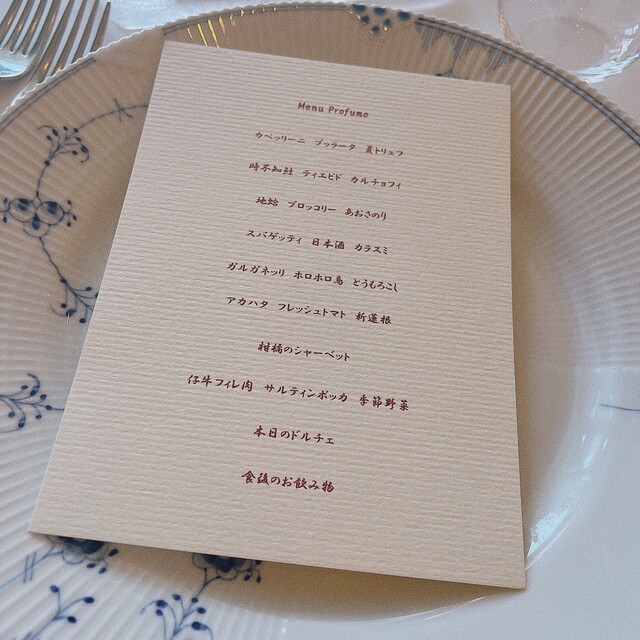 Menu Profumo
カペッリーニ ブッラータ 夏トリュフ
時不知鮭 ティエピド カルチョフィ
地蛤 ブロッコリー あおさのり
スパゲッティ 日本酒 カラスミ
ガルガネッリ ホロホロ鳥 とうもろこし
アカハタ フレッシュトマト 新蓮根
柑橘のシャーベット
仔牛フィレ肉 サルティンボッカ 季節野菜
本日のドルチェ
食後のお飲み物